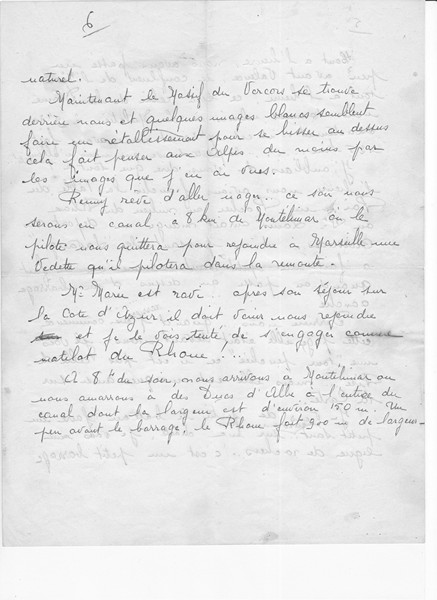 6
naturel.
Maintenant le Massif du Vercors se trouve
derrière nous et quelques nuages blancs semblent
faire un rétablissement pour se hisser au dessus
cela fait penser aux Alpes du moins par
les images que j'en ai vues.
Remy rêve d'aller nager. ce soir nous
serons en canal à 8 km. de Montélimar où le
pilote nous quittera pour rejoindre à Marseille une
vedette qu'il pilotera dans la remonte.
Mr Marin est ravi. après son séjour sur
la Cote d'Azur il doit venir nous rejoindre
et je le vois tenté de s'engager comme
matelot du Rhone...
A 8h du soir, nous arrivons à Montelimar ou
nous amarrons à des Ducs d'Albe à l'entrée du
canal dont la largeur est d'environ 150 m. Un
peu avant le barrage, le Rhone fait 900 m de largeur-